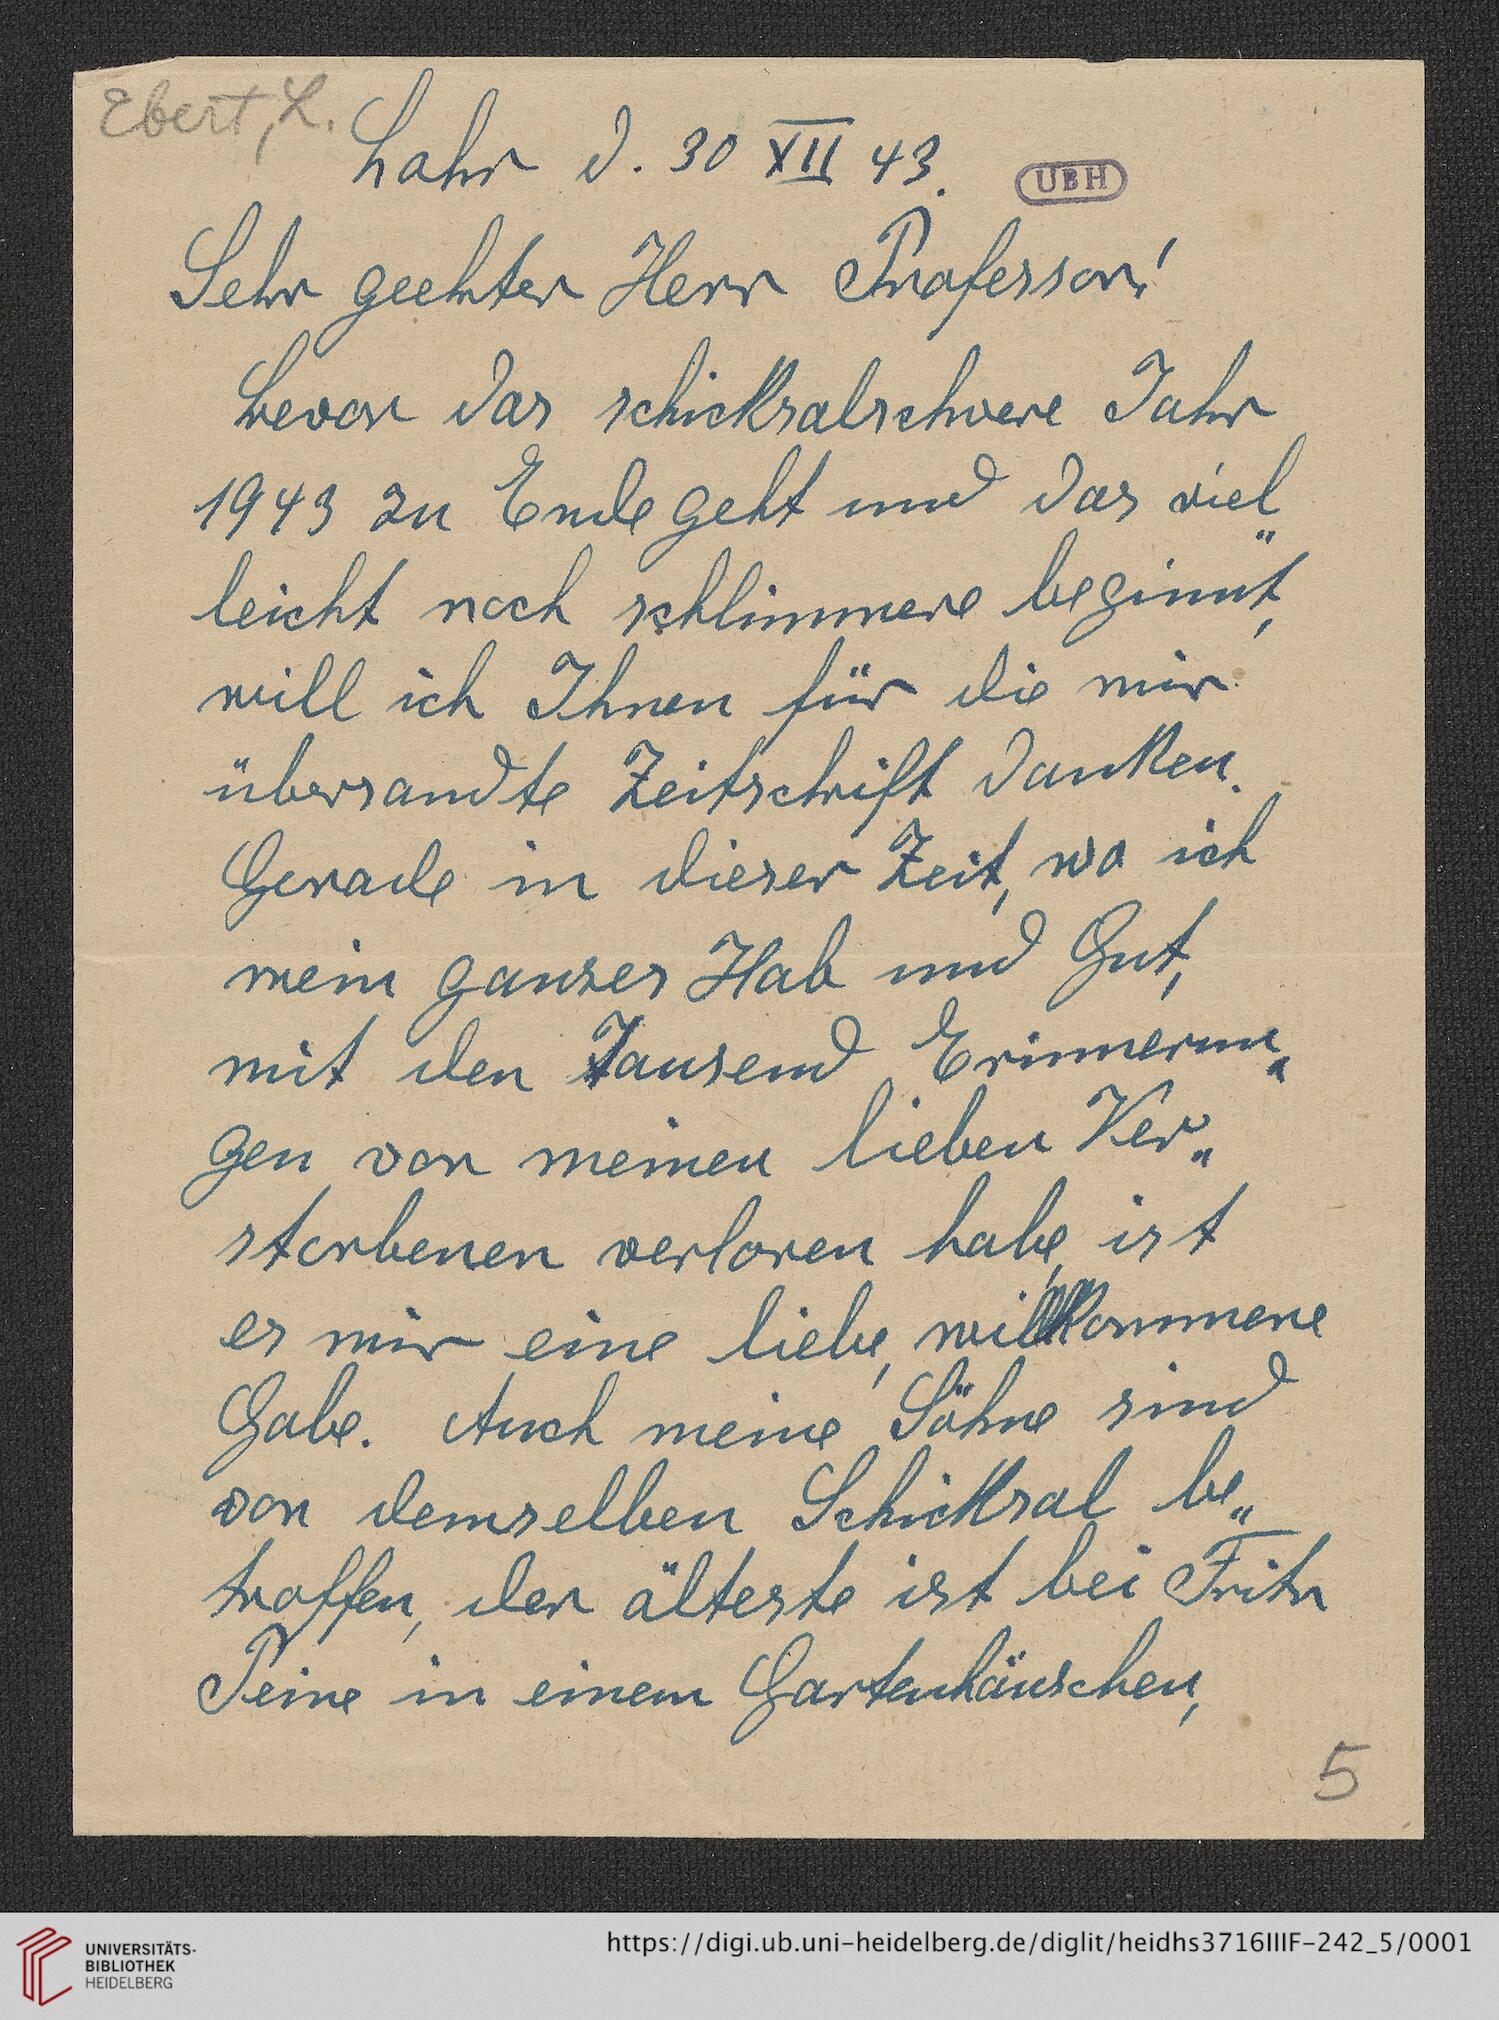 Ebert, L.
Lahr d. 30 XII 43.
UBH
Sehr geehrter Herr Professor!
bevor das schicksalschwere Jahr
1943 zu Ende geht und das viel„
leicht noch schlimmere beginnt,
will ich Ihnen für die mir
übersandte Zeitschrift danken.
Gerade in dieser Zeit, wo ich
mein ganzes Hab und Gut,
mit den Tausend Erinnerun„
gen von meinen lieben Ver„
storbenen verloren habe, ist
es mir eine liebe, willkommene
Gabe. Auch meine Söhne sind
von demselben Schicksal be„
troffen, der älteste ist bei Fritz
Peine in einem Gartenhäuschen,
5
UNIVERSITÄTS-
BIBLIOTHEK
HEIDELBERG
https://digi.ub.uni-heidelberg.de/diglit/heidhs3716IIIF-242_5/0001